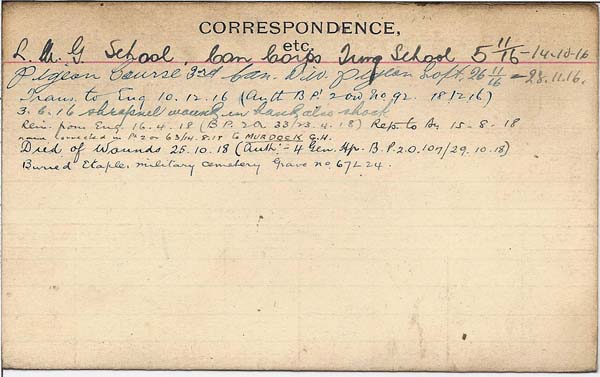 CORRESPONDENCE,
etc.
L. M. G School, Can Corps Trng School 5 11/16 - 14-10-16
Pigeon Course 3rd Can. Div. pigeon loft. 26 11/16 - 28.11.16.
Trans. to Eng 10.12.16 (Auth B.P. 2 no 92 18/12/16)
3.6.16 shrapnel wound in also shock
Rein. from Eng. 16.4.18 (B.P. 2.O. 33/23.4.18) Rep. to 15-8-18
name corrected in P. 2.O 63/14.8.18 to MURDOCK G.H.
Died of Wounds 25.10.18 (Auth:- 4 Gen. Hp. B.P.2.O. 107/29.10.18)
Buried Etaples military cemetery Grave no. 67L24.